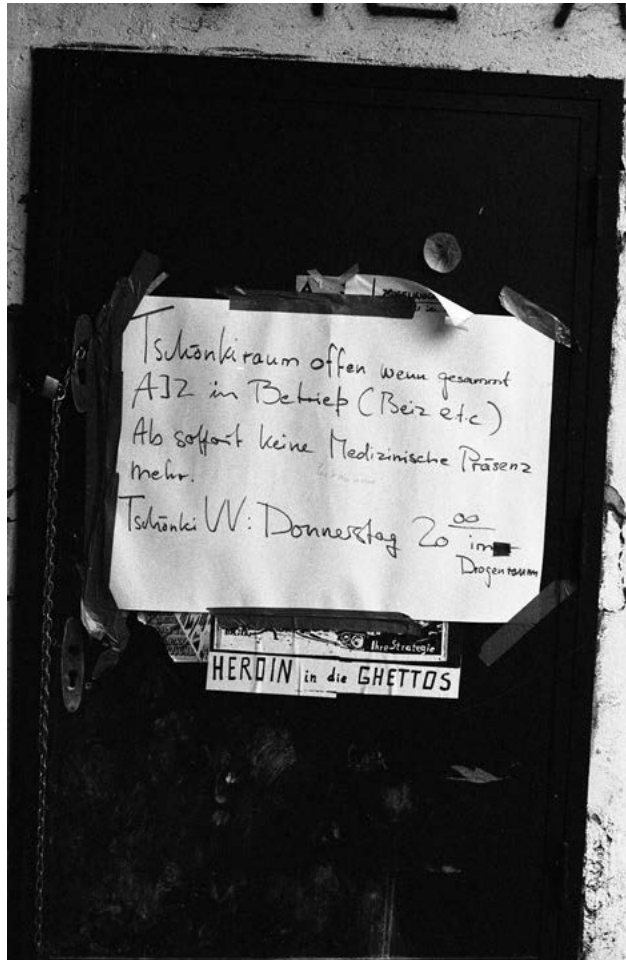 Tschönkiraum offen wenn gesammt
AJZ in Betrieb (Beiz etc)
Ab soffort keine Medizinische Präsenz
mehr.
Tschönki VV: Donnerstag 20 00 im
Drogenraum
Ihre Strategie
HEROIN in die GHETTOS